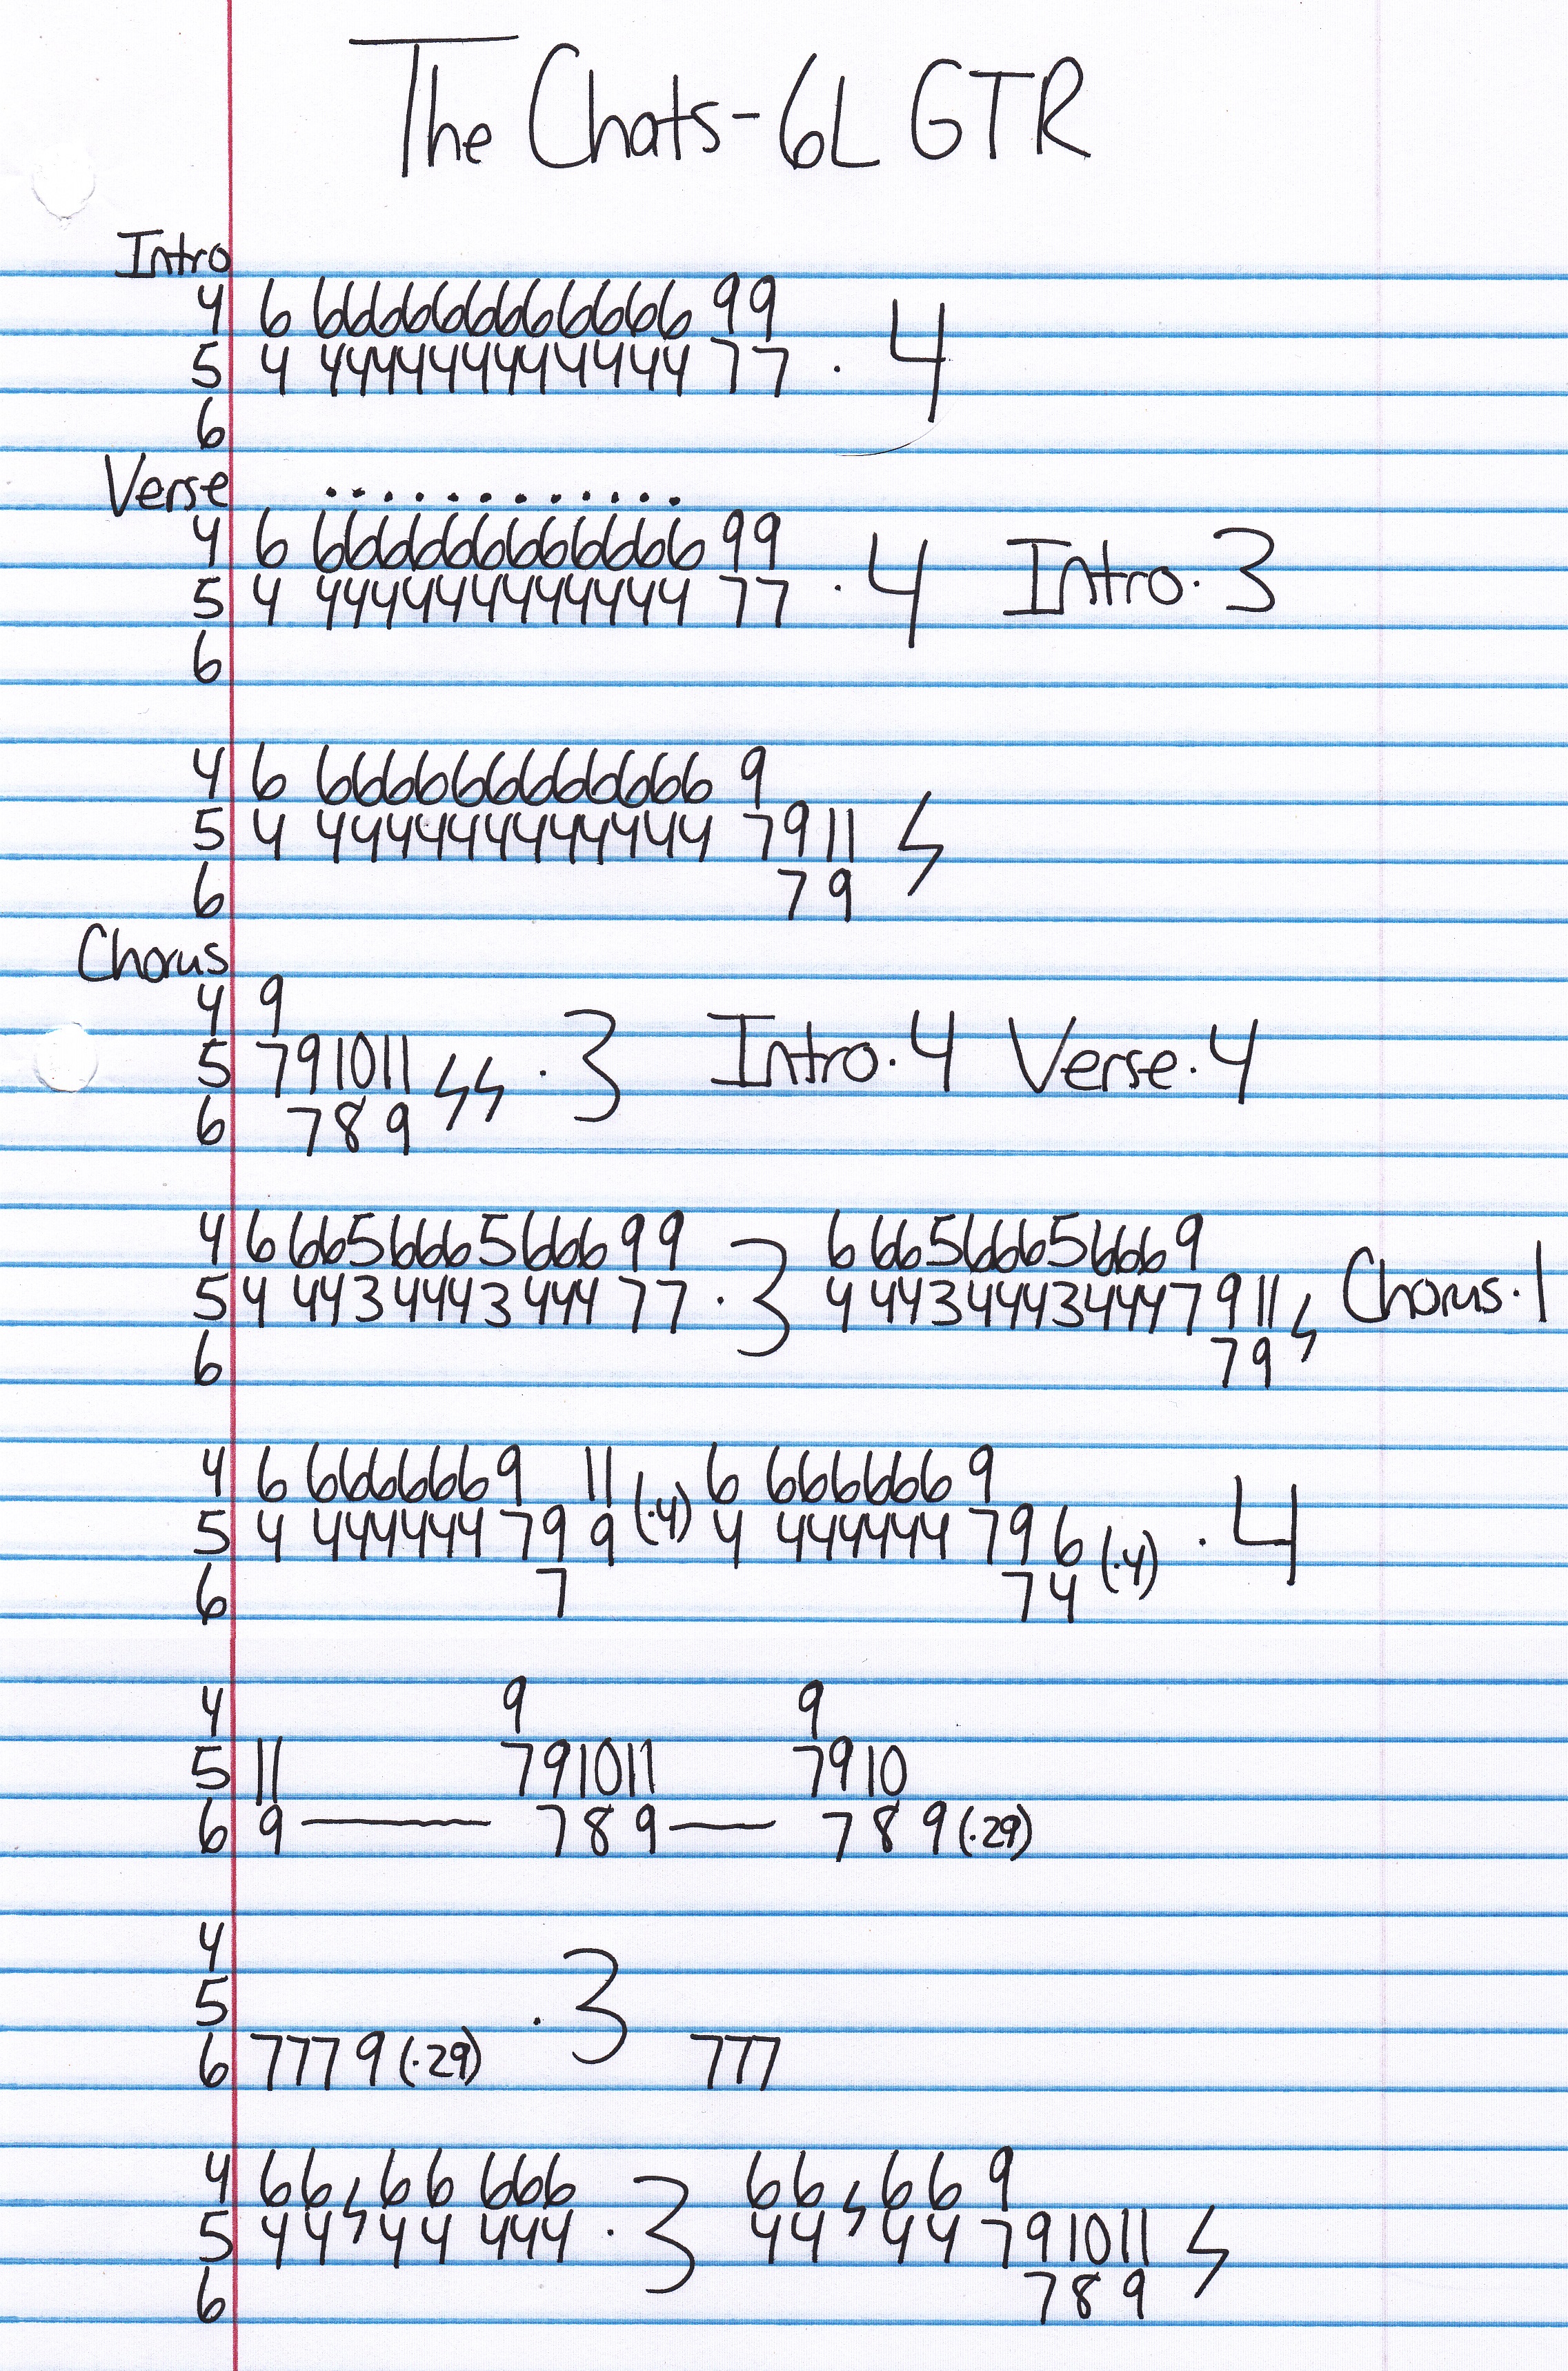 The Chats - 6L GTR
Intro
4 6 666666666666 99
5 4 444444444444 77 · 4
6
Verse
4 6 666666666666 99
5 4 444444444444 77 · 4 Intro · 3
6
4 6 666666666666 9
5 4 444444444444 7 9 11
6 7 9
Chorus
4 9
5 7 9 10 11 · 3 Intro · 4 Verse · 4
6 7 8 9
4 6 66566656669 9 6 66566656669
5 4 44344434447 7 · 3 4 44344434447 9 11 Chorus · 1
6 7 9
4 6 6666669 11 (·4) 6 666666 9
5 4 444444 7 9 9 4 444444 7 9 6 (·4) · 4
6 7 7 4
4 9 9
5 11 7 9 10 11 7 9 10
6 9 — 7 8 9 — 7 8 9 (·29)
4
5 · 3
6 777 9 (·29) 777
4 66 66 666 66 66 9
5 44 44 444 · 3 44 44 7 9 10 11
6 7 8 9